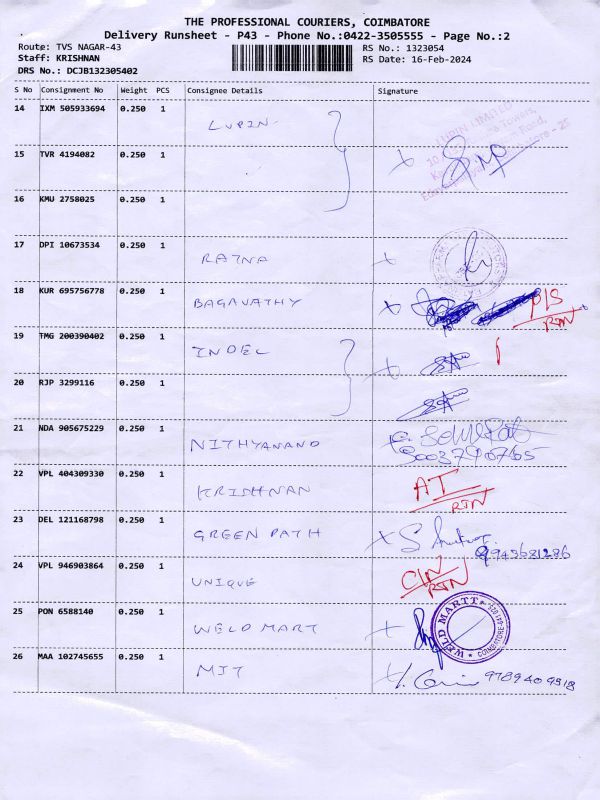 THE PROFESSIONAL COURIERS, COIMBATORE
Delivery Runsheet - P43 - Phone No.:0422-3505555 - Page No.:2
Route: TVS NAGAR-43 RS No.: 1323054
Staff: KRISHNAN RS Date: 16-Feb-2024
DRS No.: DCJB132305402
S No Consignment No Weight PCS Consignee Details Signature
14 IXM 505933694 0.250 1 LUPIN
LUPIN LIMITED
15 TVR 4194082 0.250 1 X
16 KMU 2758025 0.250 1
17 DPI 10673534 0.250 1 RATNA X
18 KUR 695756778 0.250 1 BAGAVATHY X D/S
RTN
19 TMG 200390402 0.250 1 INDEL X
20 RJP 3299116 0.250 1
21 NDA 905675229 0.250 1 NITHYANAND
22 VPL 404309330 0.250 1 KRISHNAN AT
RTN
23 DEL 121168798 0.250 1 GREEN PATH X
24 VPL 946903864 0.250 1 UNIQUE CIN
RTN
25 PON 6588140 0.250 1 WELD MART X WELD MARTT
26 MAA 102745655 0.250 1 MIT 9789409518